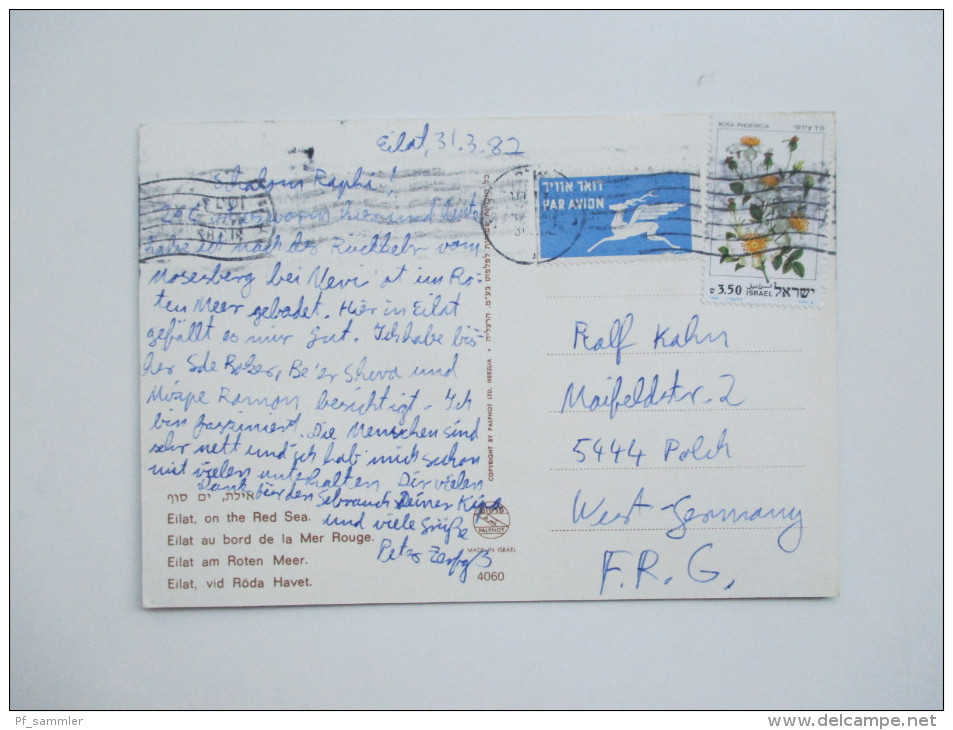 Eilat, 31.3.82
Schalom Rapha!
habe ich nach der Rückkehr vom
Mosesberg bei Nevi'ot im Ro-
ten Meer gebadet. Hier in Eilat
gefällt es mir gut. Ich habe bis-
her Sde Boker, Be'er Sheva und
Mizpe Ramon besichtigt. Ich
bin fasziniert. Die Menschen sind
sehr nett und ich hab mich schon
mit vielen unterhalten. Dir vielen
Dank für den Gebrauch Deiner
und viele Grüße
Peter
אילת, ים סוף
Eilat, on the Red Sea.
Eilat au bord de la Mer Rouge.
Eilat am Roten Meer.
Eilat, vid Röda Havet.
COPYRIGHT BY PALPHOT LTD. HERZLIA •
PALPHOT
MADE IN ISRAEL
4060
דואר אוויר
PAR AVION
ROSA PHOENICIA
ש 3.50
ISRAEL ישראל
Ralf Kahn
Maifeldstr. 2
5444 Polch
West-Germany
F.R.G.
Pf_sammler
www.delcampe.net